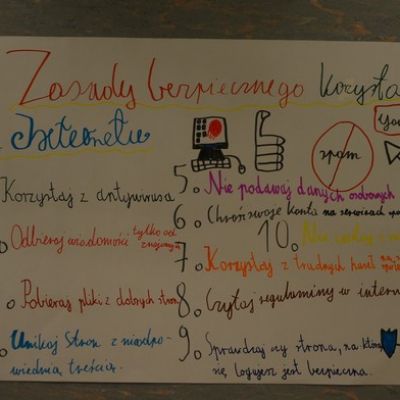 Zasady bezpiecznego korzysta
Internetu
spam
You
Korzystaj z antywirusa
Odbieraj wiadomości tylko od znajomych
Pobieraj pliki z dobrych stron
Unikaj stron z nieodpo-
wiednią treścią.
5. Nie podawaj danych osobowych
6. Chroń swoje konta na serwisach
10. Nie
7. Korzystaj z trudnych haseł
8. Czytaj regulaminy w intern
9. Sprawdzaj czy strona, na którą
się logujesz jest bezpieczna.